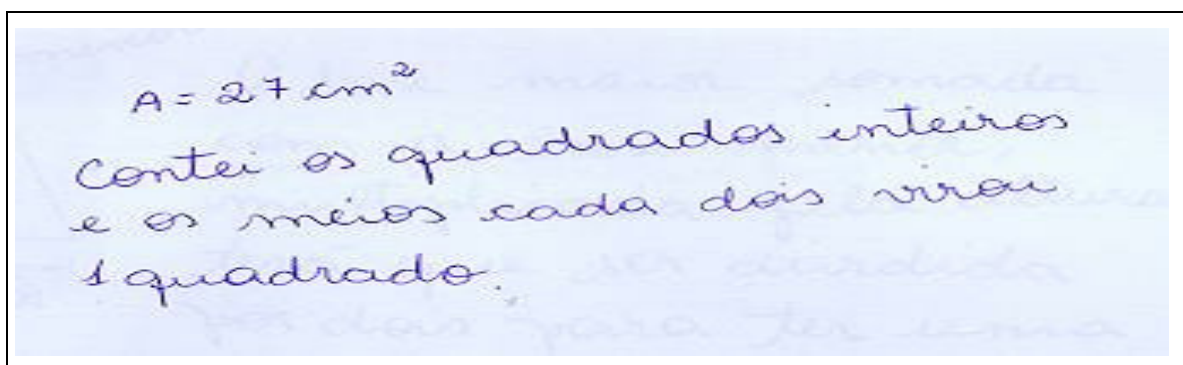 A = 27 cm²
Contei os quadrados inteiros
e os meios cada dois virou
1 quadrado.